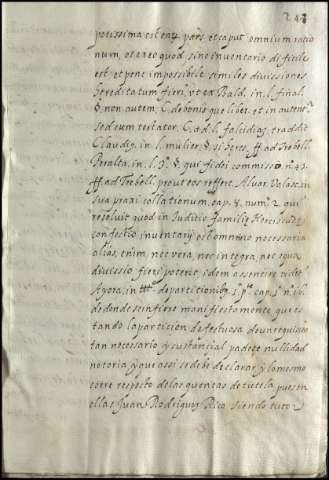 243
potissima est enz pars et caput omnium ratio
num, et ea eo quod sine inventario dificile
est et pene impossible similes divissiones
hereditatum fieri, ut ea Bald. in l. final.
§. non autem, C. de bonis quæ liber. et in autent.
sed cum testator, C. ad l. falcidiaz, tradit
Claudes, in l. mulier, §. si heres, ff. ad Trebell.
Peralta, in l. 3ª. §. qui fidei commissa, nº. 41.
ff. ad Trebell. prout eos reffert Alvar. Valasc. in
sua praxi collationum, cap. 8, num. 2. qui
resolvit quod in Juditio familiæ herciscundæ
confectio inventarij est omnino necessaria
alias enim nec vera, nec integra, nec equa
divissio fieri poterit, idem assentire videt
Ayora, in de partitionibus, 1. pª. cap. 1. nº. 16.
de donde se infiere manifiestamente que es
tando la particion defectuosa de un requisito
tan necesario y sustancial padece nullidad
notoria, y que assi se debe declarar, y lo mesmo
corre respecto de las quentas de tutela, pues en
ellas Juan Rodriguez Rico siendo tutor